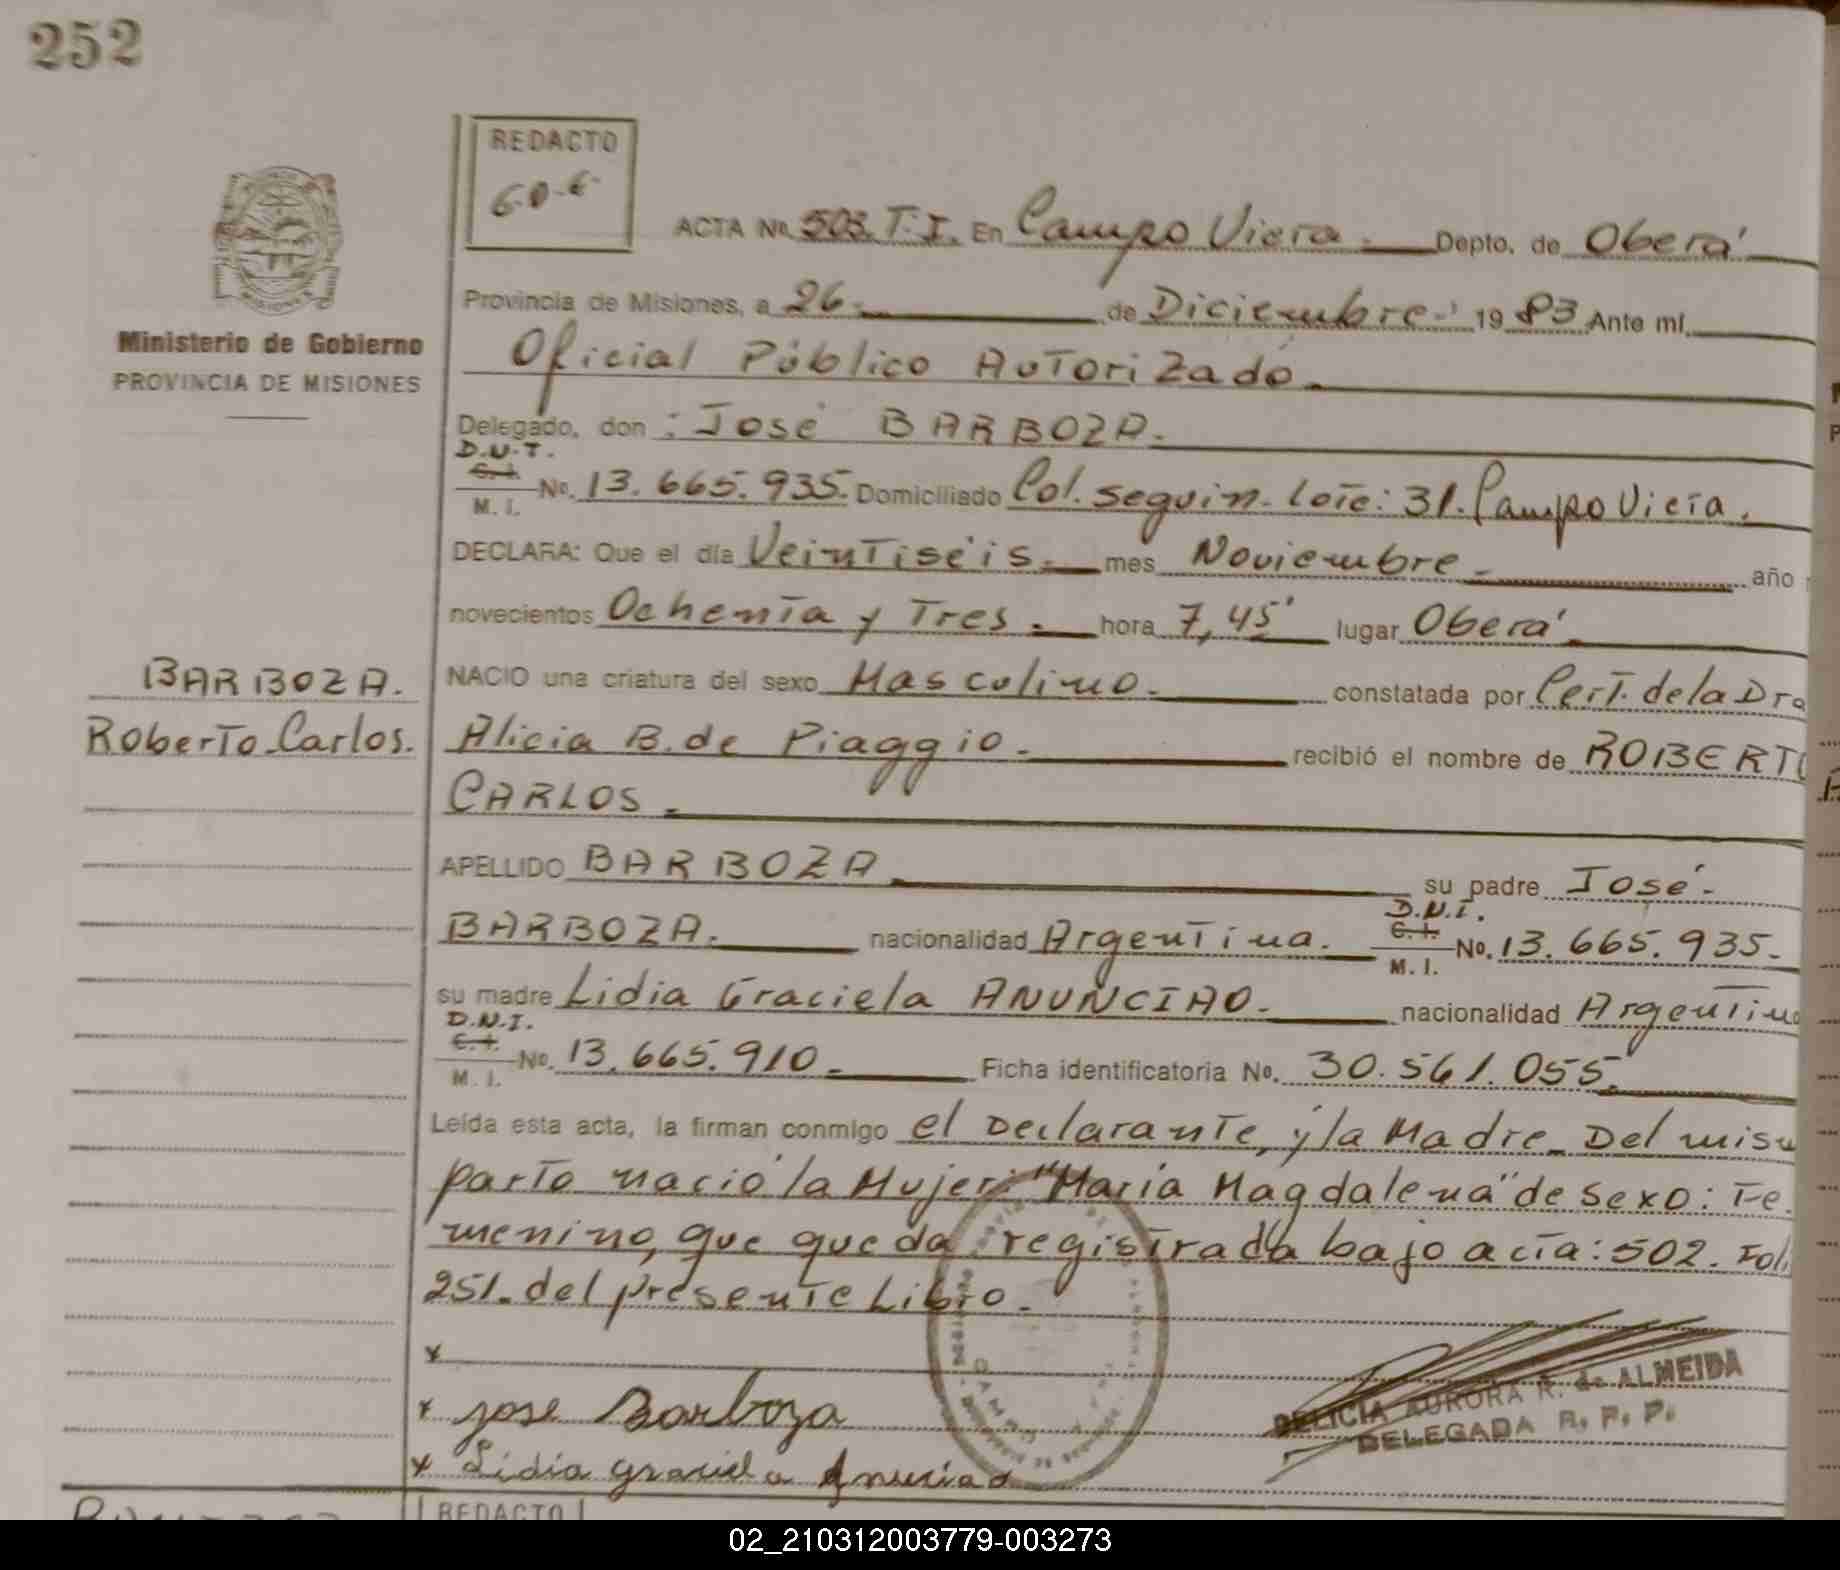 252
REDACTO
6-0-6-
ACTA No. 503. T.I. En Campo Viera. Depto. de Oberá
Provincia de Misiones, a 26. de Diciembre. 1983 Ante mí,
Ministerio de Gobierno
PROVINCIA DE MISIONES
Oficial Público Autorizado.
Delegado, don : José BARBOZA.
D.N.I.
C. I.
M. I.
No. 13.665.935. Domiciliado Col. Seguin. Lote: 31. Campo Viera.
DECLARA: Que el día Veintiséis. mes Noviembre. año
novecientos Ochenta y Tres. hora 7,45' lugar Oberá
NACIO una criatura del sexo Masculino. constatada por Cert. de la Dra
BARBOZA.
Roberto Carlos.
Alicia B. de Piaggio. recibió el nombre de ROBERTO
CARLOS.
APELLIDO BARBOZA su padre José
BARBOZA. nacionalidad Argentina. D.N.I. C. I. M. I. No. 13.665.935.
su madre Lidia Graciela ANUNCIAO. nacionalidad Argentina
D.N.I.
C. I.
M. I.
No. 13.665.910. Ficha identificatoria No. 30.561.055.
Leída esta acta, la firman conmigo el Declarante, y la Madre. Del mism
parto nació la Mujer: "María Magdalena" de sexo: Fe
menino, que queda registrada bajo acta: 502. Fol.
251. del presente Libro.
x
x Jose Barboza
x Lidia graciela Anunciao
DELICIA AURORA R. de ALMEIDA
DELEGADA R. P. P.
REDACTO
02_210312003779-003273